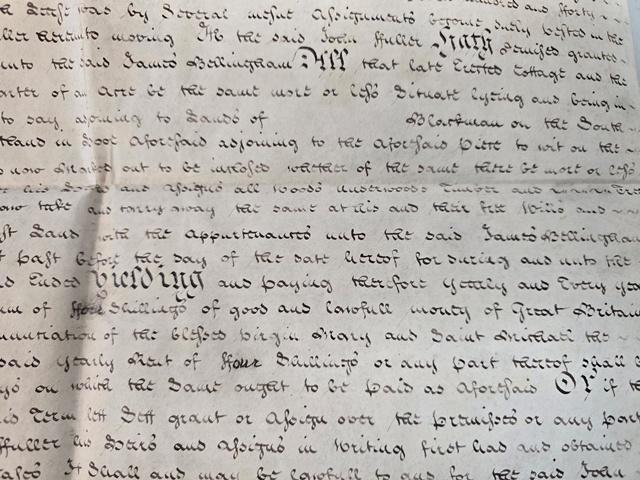 hundred and fforty
Lease was by Several mesne Assignments become duly vested in the
ller hereunto moving He the said John ffuller Hath Demised granted
unto the said James Bellingham All that late Erected Cottage and the
arter of an Acre be the same more or less Situate lyeing and being in
to say adjoining to Lands of Blackman on the South
thand in Dore aforesaid adjoining to the aforesaid Piece to wit on the
now Staked out to be inclosed whether of the same there be more or less
his Heirs and Assigns all Woods Underwoods Timber and
take and carry away the same at his and their free Wills and
st Land with the Appurtenances unto the said James Bellingham
t past before the day of the date hereof for during and unto the
d Ended Yielding and paying therefore Yearly and Every year
um of ffour Shillings of good and lawfull money of Great Britain
nunciation of the blessed Virgin Mary and Saint Michael the
said yearly Rent of ffour Shillings or any part thereof shall b
ys on which the Same ought to be paid as aforesaid Or if t
is Term lett Sett grant or Assign over the premisses or any part
ffuller his Heirs and Assigns in Writing first had and obtained
It Shall and may be lawfull to and for the said John